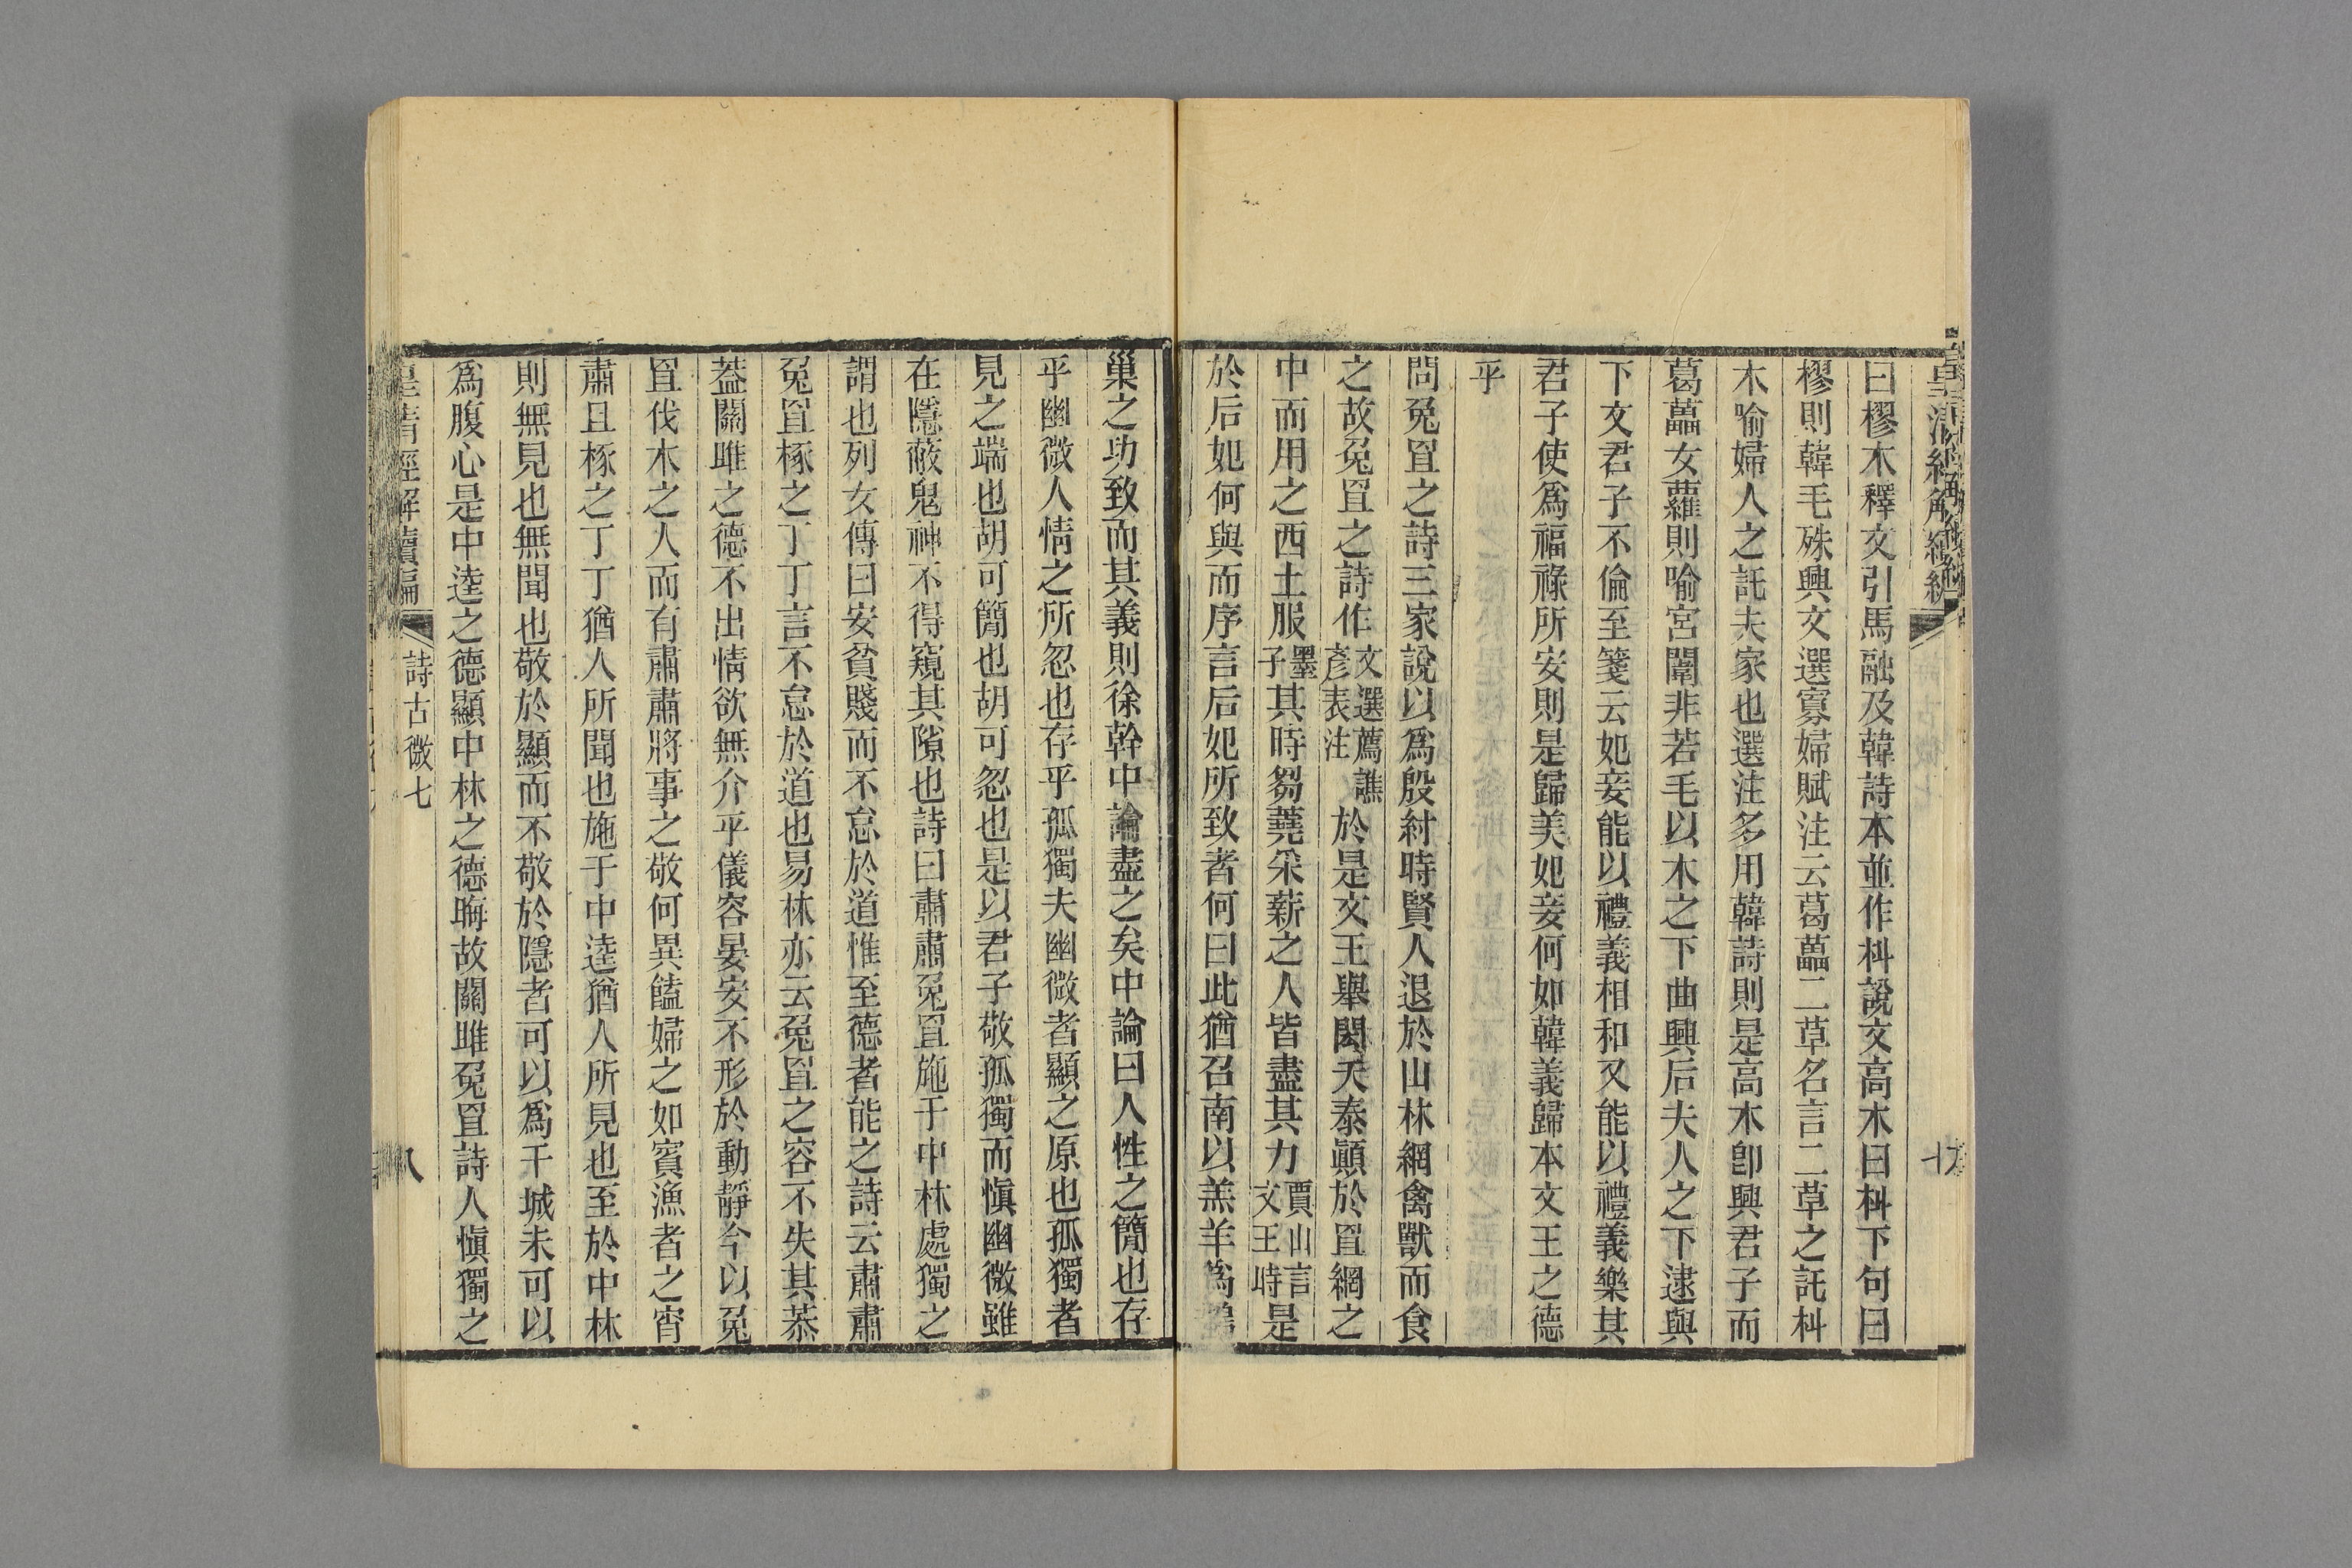 曰樛木釋文引馬融及韓詩本並作朻說文高木曰朻下句曰
樛則韓毛殊興文選寡婦賦注云葛藟二草名言二草之託朻
木喻婦人之託夫家也選注多用韓詩則是高木卽興君子而
葛藟女蘿則喻宮闈非若毛以木之下曲興后夫人之下逮與
下文君子不倫至箋云妃妾能以禮義相和又能以禮義樂其
君子使爲福祿所安則是歸美妃妾何如韓義歸本文王之德
乎
問兔罝之詩三家說以爲殷紂時賢人退於山林網禽獸而食
之故兔罝之詩作文選薦譙彥表注於是文王舉閎夭泰顚於罝網之
中而用之西土服墨子其時芻蕘采薪之人皆盡其力賈山言文王時是
於后妃何與而序言后妃所致者何曰此猶召南以羔羊爲鵲
巢之功致而其義則徐幹中論盡之矣中論曰人性之簡也存
乎幽微人情之所忽也存乎孤獨夫幽微者顯之原也孤獨者
見之端也胡可簡也胡可忽也是以君子敬孤獨而愼幽微雖
在隱蔽鬼神不得窺其隙也詩曰肅肅兔罝施于中林處獨之
謂也列女傳曰安貧賤而不怠於道惟至德者能之詩云肅肅
兔罝椓之丁丁言不怠於道也易林亦云兔罝之容不失其恭
葢關雎之德不出情欲無介乎儀容晏安不形於動靜今以兔
罝伐木之人而有肅肅將事之敬何異饁婦之如賓漁者之宵
肅且椓之丁丁猶人所聞也施于中逵猶人所見也至於中林
則無見也無聞也敬於顯而不敬於隱者可以爲干城未可以
爲腹心是中逵之德顯中林之德晦故關雎兔罝詩人愼獨之
皇清經解續編 詩古微七 八